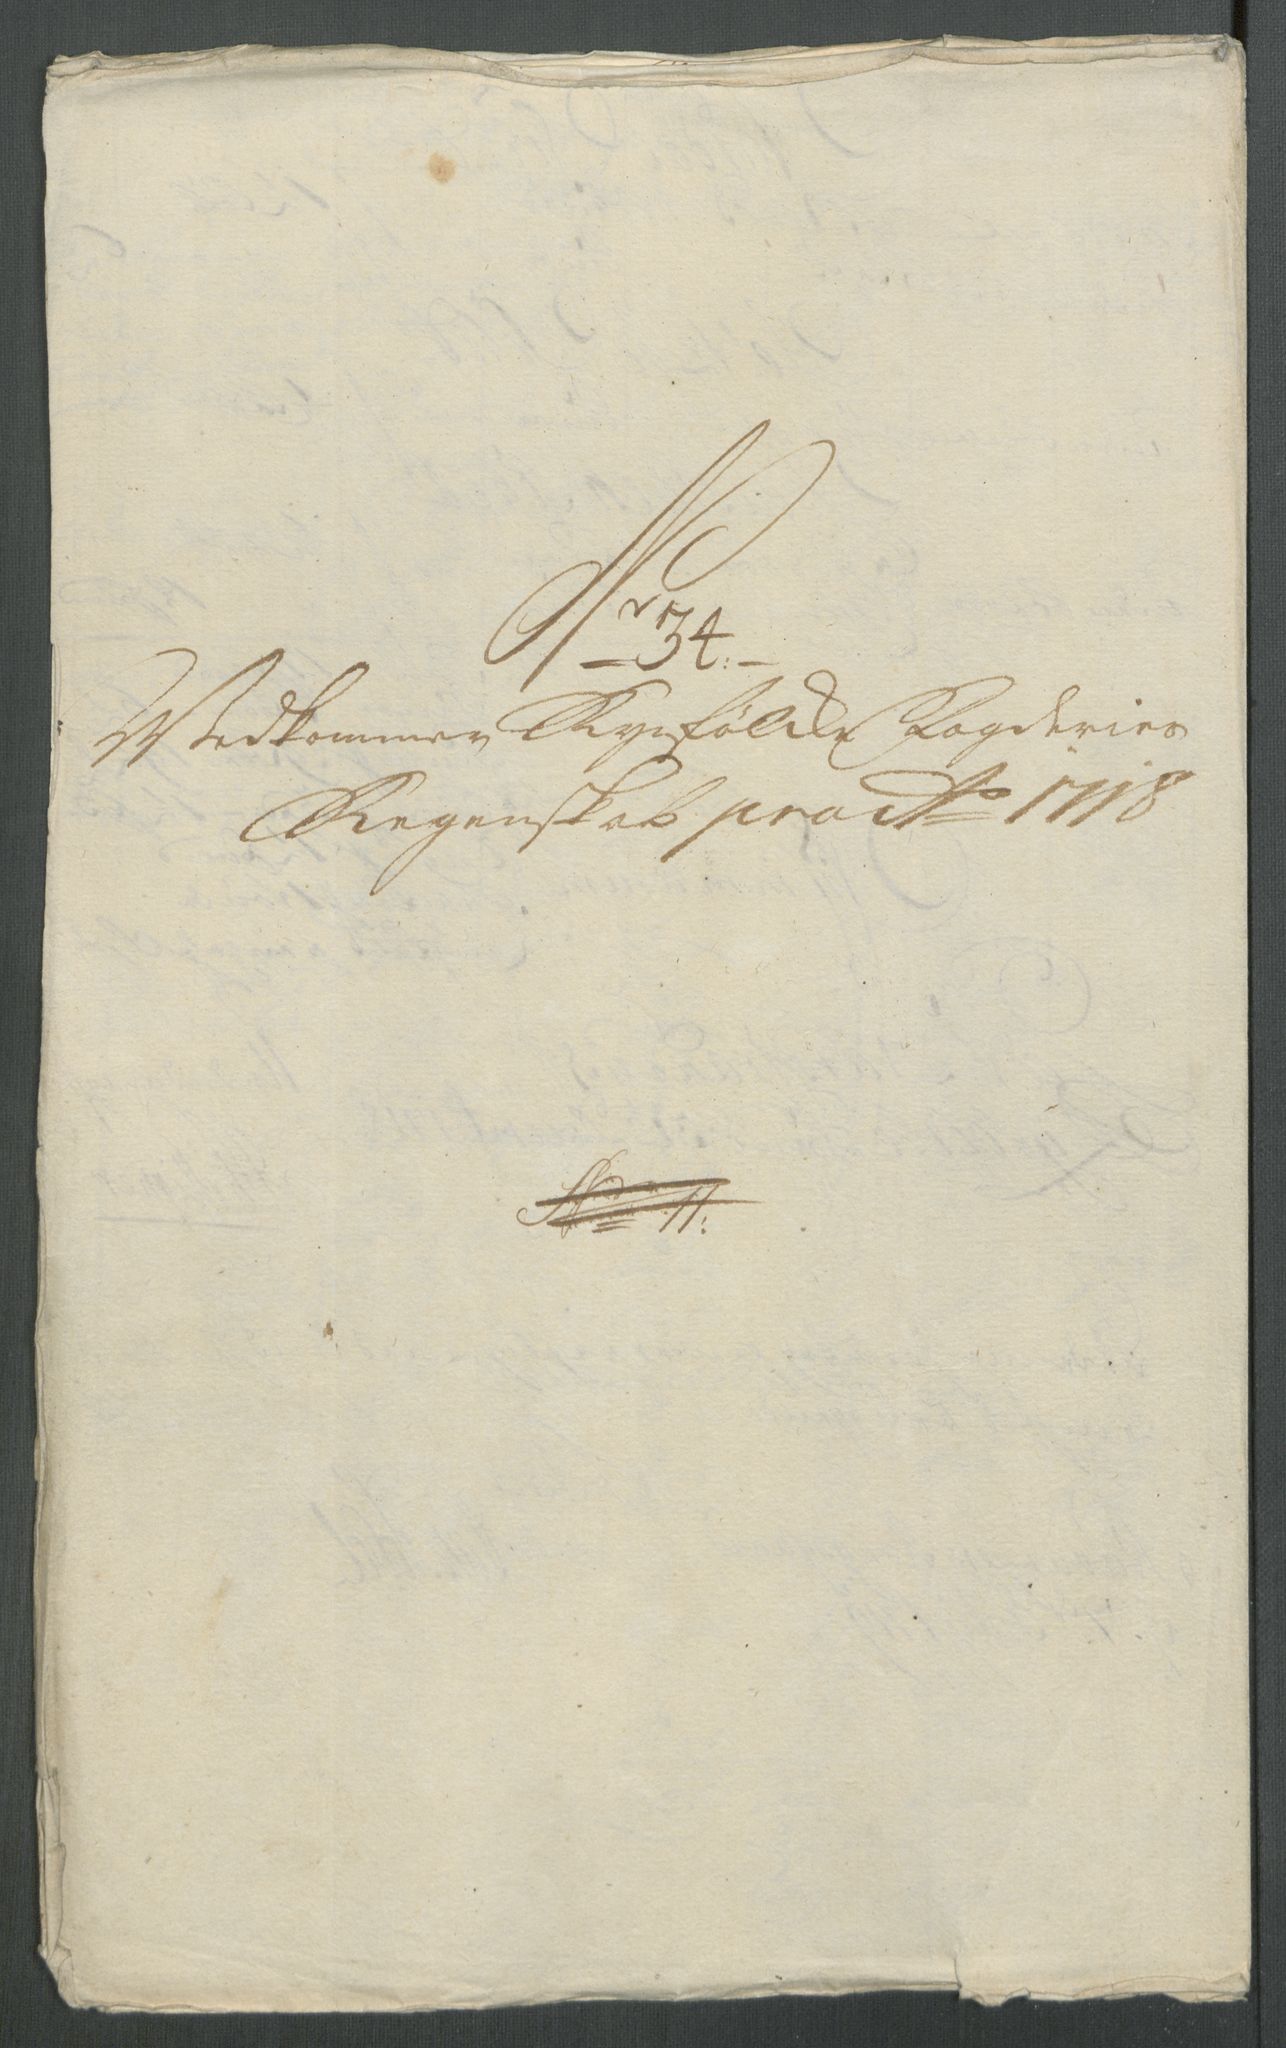 Nr 34.
Vedkommer Ryefölcke Fogderies
Regenskab pro Ao 1718
No 11.